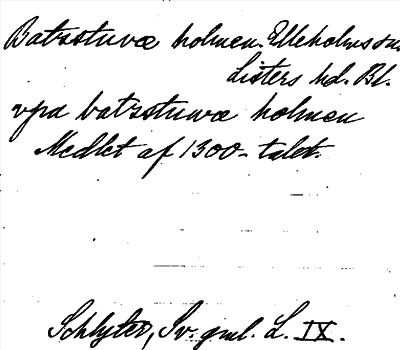 Batzstuwæ holmen. Elleholms sn.
Listers hd. Bl.
vpa batzstuwæ holmen
Medlet af 1300-talet.
Schlyter, Sv. gml. L. IX.